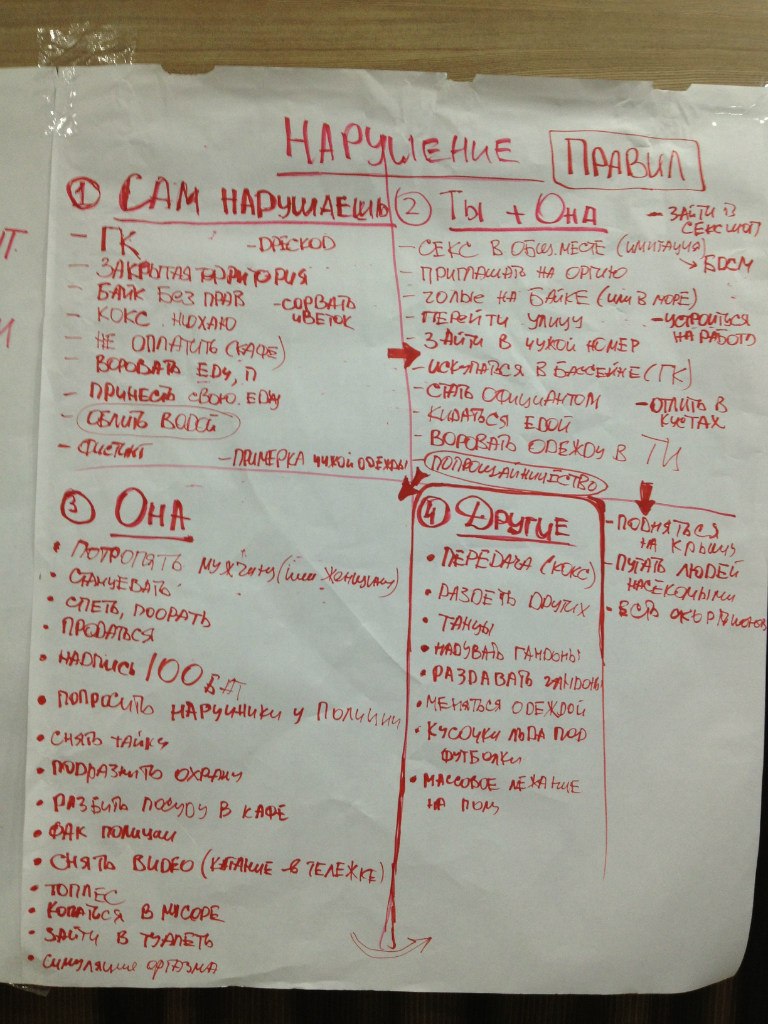 НАРУШЕНИЕ ПРАВИЛ
① САМ НАРУШАЕШЬ
- ГК
- ДРЕСКОД
- ЗАКРЫТАЯ ТЕРРИТОРИЯ
- БАЙК БЕЗ ПРАВ
- СОРВАТЬ ЦВЕТОК
- КОКС НЮХАЮ
- НЕ ОПЛАТИТЬ (КАФЕ)
- ВОРОВАТЬ ЕДУ, П
- ПРИНЕСТЬ СВОЮ ЕДУ
- ОБЛИТЬ ВОДОЙ
- ФИСТИНГ
- ПРИМЕРКА ЧУЖОЙ ОДЕЖДЫ
② ТЫ + ОНА
- ЗАЙТИ В СЕКСШОП
- СЕКС В ОБЩ. МЕСТЕ (ИМИТАЦИЯ)
→ БДСМ
- ПРИГЛАШАТЬ НА ОРГИЮ
- ГОЛЫЕ НА БАЙКЕ (ИЛИ В МОРЕ)
- ПЕРЕЙТИ УЛИЦУ
- УСТРОИТЬСЯ НА РАБОТУ
- ЗАЙТИ В ЧУЖОЙ НОМЕР
- ИСКУПАТЬСЯ В БАССЕЙНЕ (ГК)
- СТАТЬ ОФИЦИАНТОМ
- ОТЛИТЬ В КУСТАХ
- КИДАТЬСЯ ЕДОЙ
- ВОРОВАТЬ ОДЕЖДУ В ТЦ
ПОПРОШАЙНИЧЕСТВО
- ПОДНЯТЬСЯ НА КРЫШУ
- ПУГАТЬ ЛЮДЕЙ НАСЕКОМЫМИ
- ЕСТЬ СКОРПИОНОВ
③ ОНА
• ПОТРОГАТЬ МУЖЧИНУ (ИЛИ ЖЕНЩИНУ)
• СТАНЦЕВАТЬ
• СПЕТЬ, ПООРАТЬ
• ПРОДАТЬСЯ
• НАДПИСЬ 100 БАТ
• ПОПРОСИТЬ НАРУЧНИКИ У ПОЛИЦИИ
• СНЯТЬ ТАЙКУ
• ПОДРАЗНИТЬ ОХРАНУ
• РАЗБИТЬ ПОСУДУ В КАФЕ
• ФАК ПОЛИЦАИ
• СНЯТЬ ВИДЕО (КАТАНИЕ В ТЕЛЕЖКЕ)
• ТОПЛЕС
• КОПАТЬСЯ В МУСОРЕ
• ЗАЙТИ В ТУАЛЕТЬ
• СИМУЛЯЦИЯ ОРГАЗМА
④ ДРУГИЕ
• ПЕРЕДАЧА (КОКС)
• РАЗДЕТЬ ДРУГИХ
• ТАНЦЫ
• НАДУВАТЬ ГАНДОНЫ
• РАЗДАВАТЬ ГАНДОНЫ
• МЕНЯТЬСЯ ОДЕЖДОЙ
• КУСОЧКИ ЛЬДА ПОД ФУТБОЛКИ
• МАССОВОЕ ЛЕЖАНИЕ НА ПОЛУ